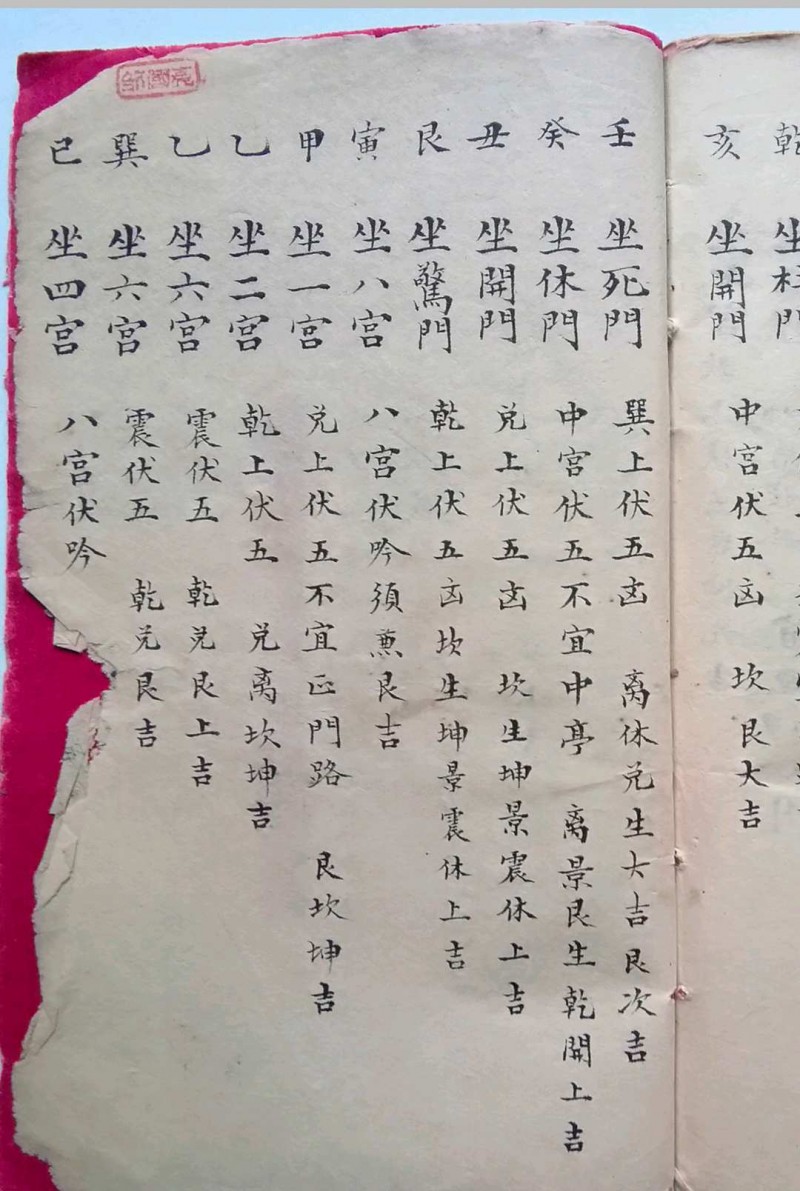 乾 坐杜門
亥 坐開門 中宮伏五凶 坎艮大吉
壬 坐死門 巽上伏五凶 离休兌生大吉艮次吉
癸 坐休門 中宮伏五不宜中亭 离景艮生乾開上吉
丑 坐開門 兌上伏五凶 坎生坤景震休上吉
艮 坐驚門 乾上伏五凶坎生坤景震休上吉
寅 坐八宮 八宮伏吟須兼艮吉
甲 坐一宮 兌上伏五不宜正門路 艮坎坤吉
乙 坐二宮 乾上伏五 兌离坎坤吉
乙 坐六宮 震伏五 乾兌艮上吉
巽 坐六宮 震伏五 乾兌艮吉
巳 坐四宮 八宮伏吟